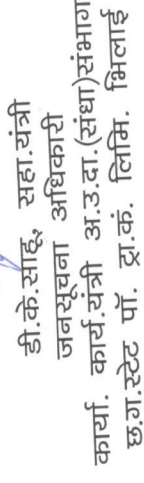 डी.के.साहू, सहा.यंत्री
जनसूचना अधिकारी
कार्या. कार्य.यंत्री अ.उ.दा.(संधा)संभाग
छ.ग.स्टेट पॉ. ट्रा.कं. लिमि. भिलाई